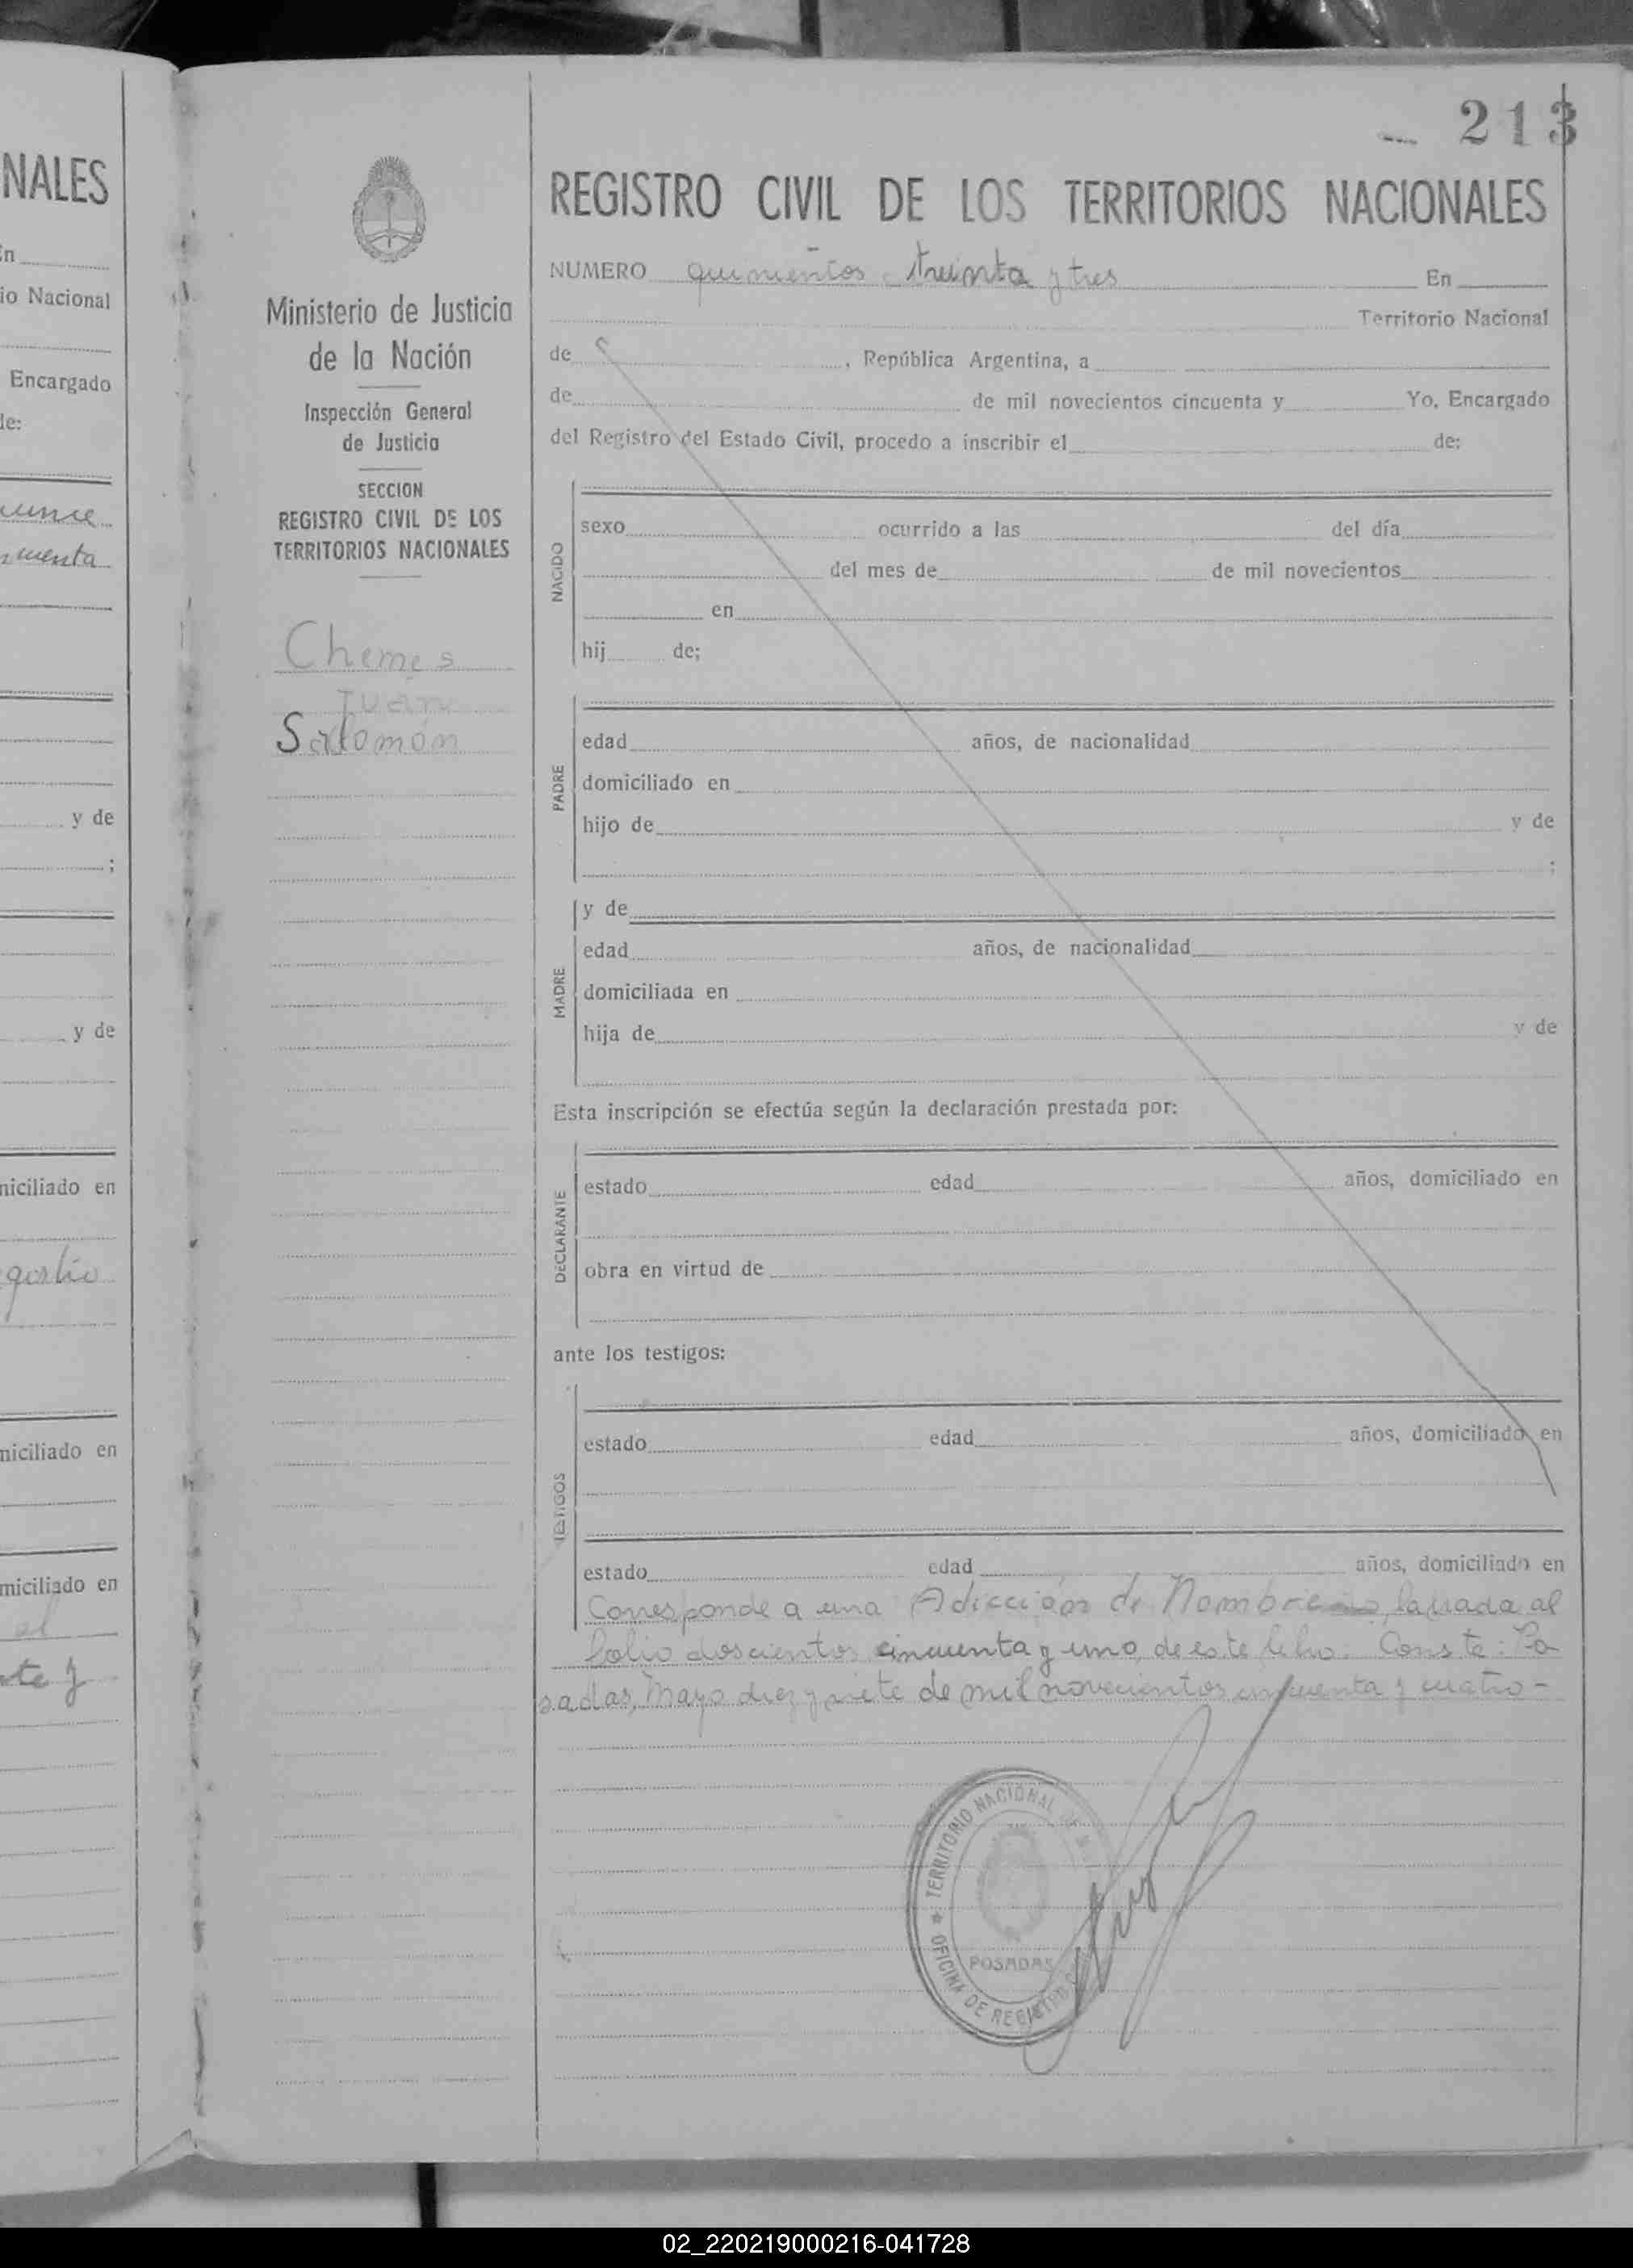 213
NALES
En
io Nacional
Encargado
de:
y de
;
y de
niciliado en
niciliado en
miciliado en
al
te y
Ministerio de Justicia
de la Nación
Inspección General
de Justicia
SECCION
REGISTRO CIVIL DE LOS
TERRITORIOS NACIONALES
Chemes
Juan
Salomón
REGISTRO CIVIL DE LOS TERRITORIOS NACIONALES
NUMERO quinientos treinta y tres En
Territorio Nacional
de , República Argentina, a
de de mil novecientos cincuenta y Yo, Encargado
del Registro del Estado Civil, procedo a inscribir el de:
NACIDO
sexo ocurrido a las del día
del mes de de mil novecientos
en
hij de;
PADRE
edad años, de nacionalidad
domiciliado en
hijo de y de
;
MADRE
y de
edad años, de nacionalidad
domiciliada en
hija de y de
Esta inscripción se efectúa según la declaración prestada por:
DECLARANTE
estado edad años, domiciliado en
obra en virtud de
ante los testigos:
TESTIGOS
estado edad años, domiciliado en
estado edad años, domiciliado en
Corresponde a una Adicción de Nombre labrada al
folio doscientos cincuenta y uno, de este libro. Conste: Po
sadas, Mayo diez y siete de mil novecientos cincuenta y cuatro-
TERRITORIO NACIONAL DE
POSADAS
OFICINA DE REGISTRO
02_220219000216-041728